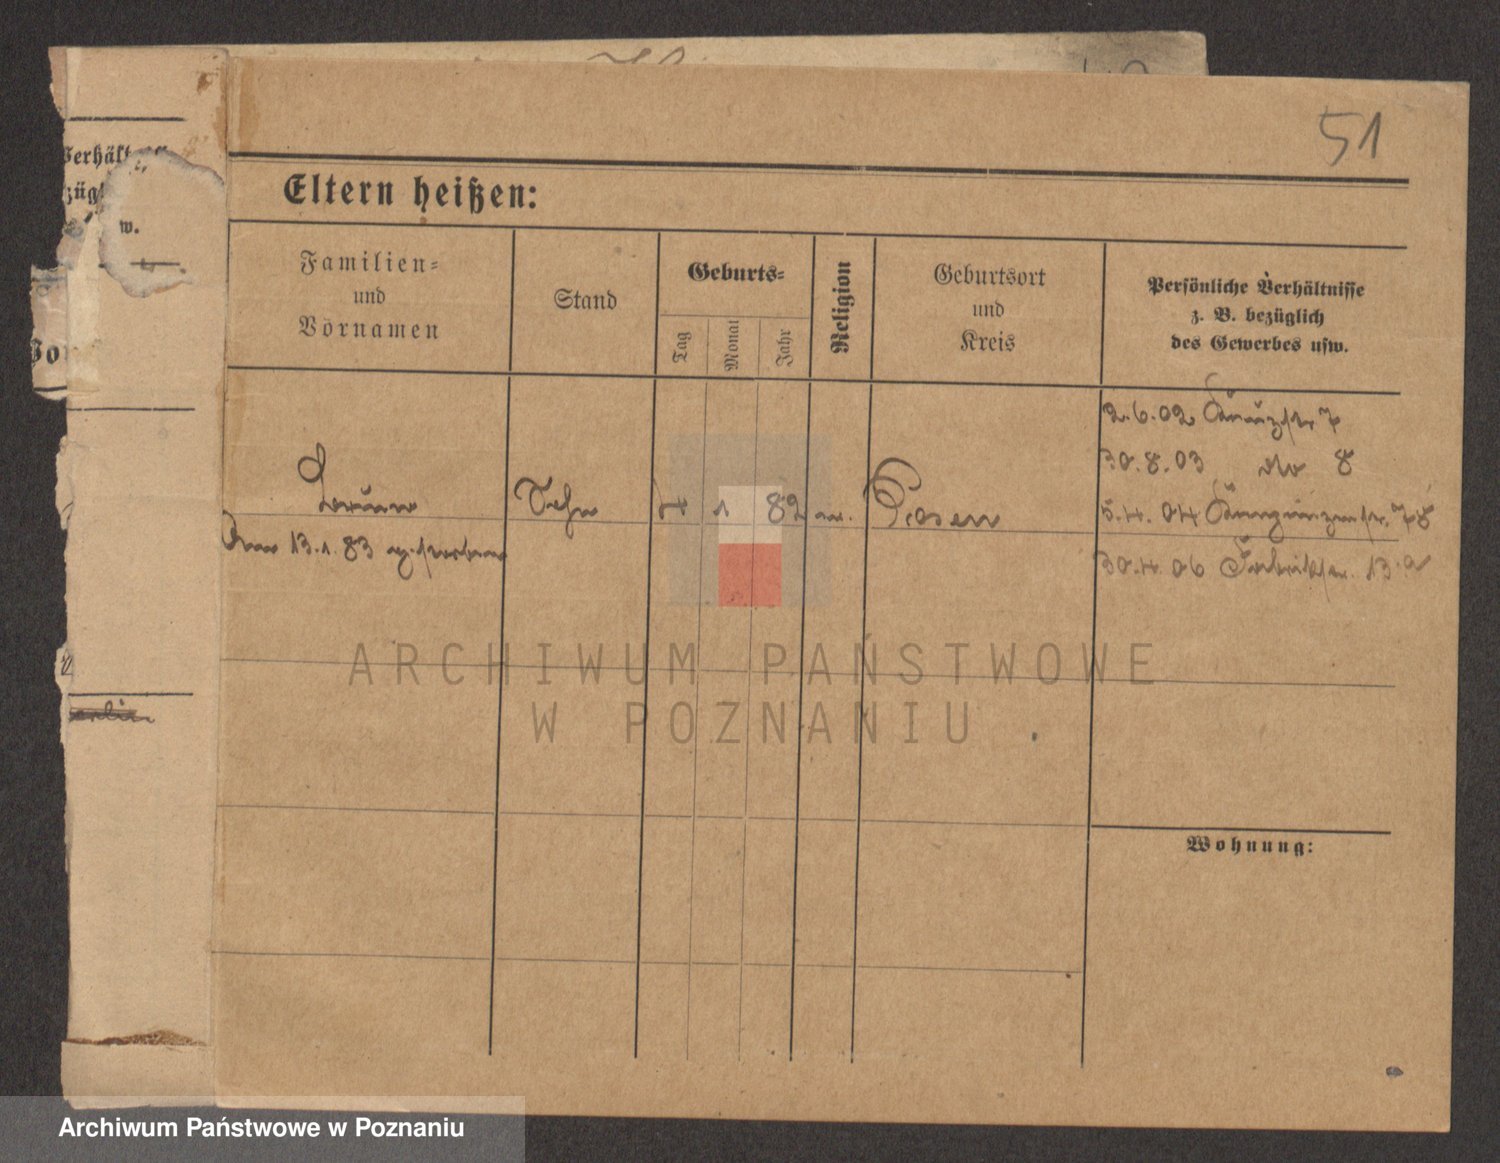 51
Verhält
zügl
w.
Vor
Eltern heißen:
Familien=
und
Vornamen
Stand
Geburts=
Tag
Monat
Jahr
Religion
Geburtsort
und
Kreis
Persönliche Verhältnisse
z. B. bezüglich
des Gewerbes usw.
2.6.02 Kreuzstr. 7
30.8.03 do 8
Bruno Sohn 4 1 82 Posen
5.4.04
Am 13.1.83 gestorben
30.4.06 Fabrikstr. 13 a
erlin
Wohnung:
ARCHIWUM PAŃSTWOWE
W POZNANIU
Archiwum Państwowe w Poznaniu